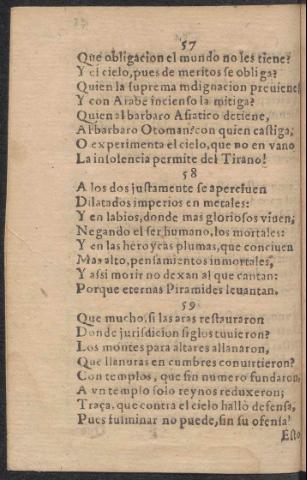 57
Que obligacion el mundo no les tiene?
Y el cielo, pues de meritos se obliga?
Quien la suprema indignacion preuiene
Y con Arabe incienso la mitiga?
Quien al barbaro Asiatico detiene,
Al barbaro Otoman? con quien castiga,
O experimenta el cielo, que no en vano
La insolencia permite del Tirano!
58
A los dos justamente se aperciuen
Dilatados imperios en metales:
Y en labios, donde mas gloriosos viuen,
Negando el ser humano, los mortales:
Y en las heroycas plumas, que conciuen
Mas alto, pensamientos inmortales,
Y assi morir no dexan al que cantan:
Porque eternas Piramides leuantan.
59
Que mucho, si las aras restauraron
Donde jurisdicion siglos tuuieron?
Los montes para altares allanaron,
Que llanuras en cumbres conuirtieron?
Con templos, que sin numero fundaron,
A vn templo solo reynos reduxeron;
Traça, que contra el cielo hallò defensa,
Pues fulminar no puede, sin su ofensa!
Esto